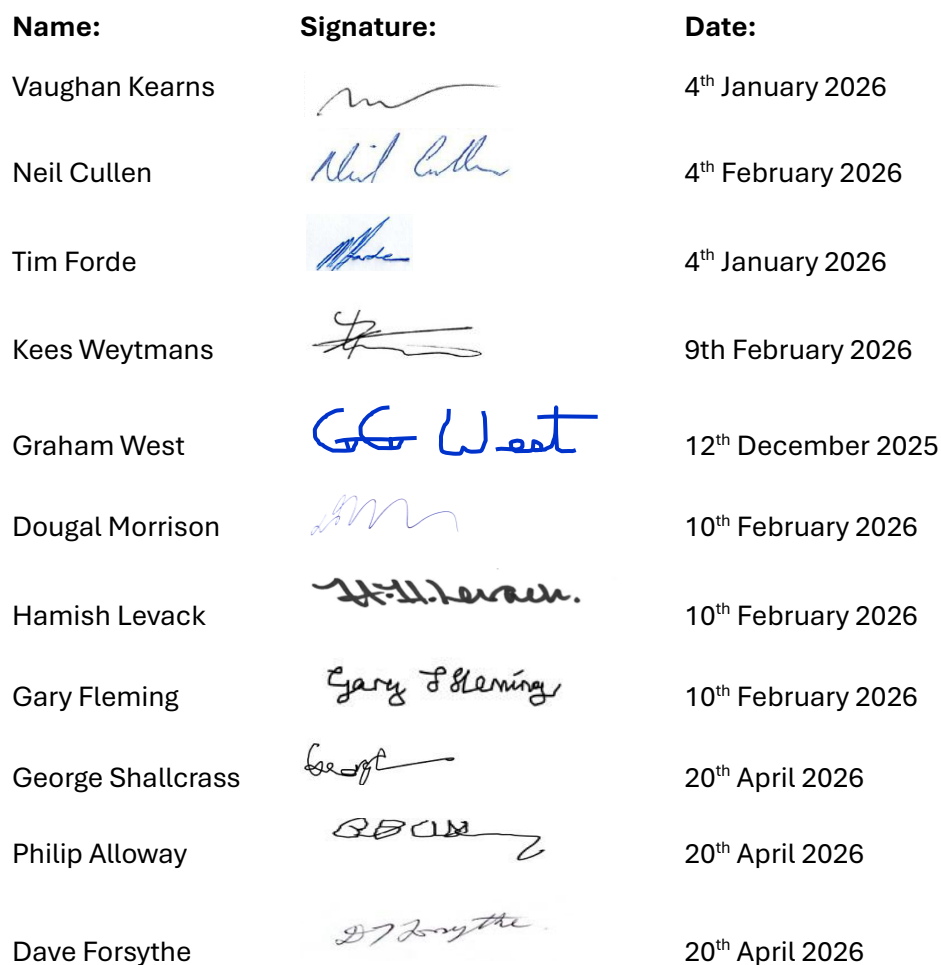 Name: Signature: Date:
Vaughan Kearns 4th January 2026
Neil Cullen Neil Cullen 4th February 2026
Tim Forde 4th January 2026
Kees Weytmans 9th February 2026
Graham West GG West 12th December 2025
Dougal Morrison 10th February 2026
Hamish Levack H.H.Levack. 10th February 2026
Gary Fleming Gary J Fleming 10th February 2026
George Shallcrass George 20th April 2026
Philip Alloway 20th April 2026
Dave Forsythe D J Forsythe 20th April 2026